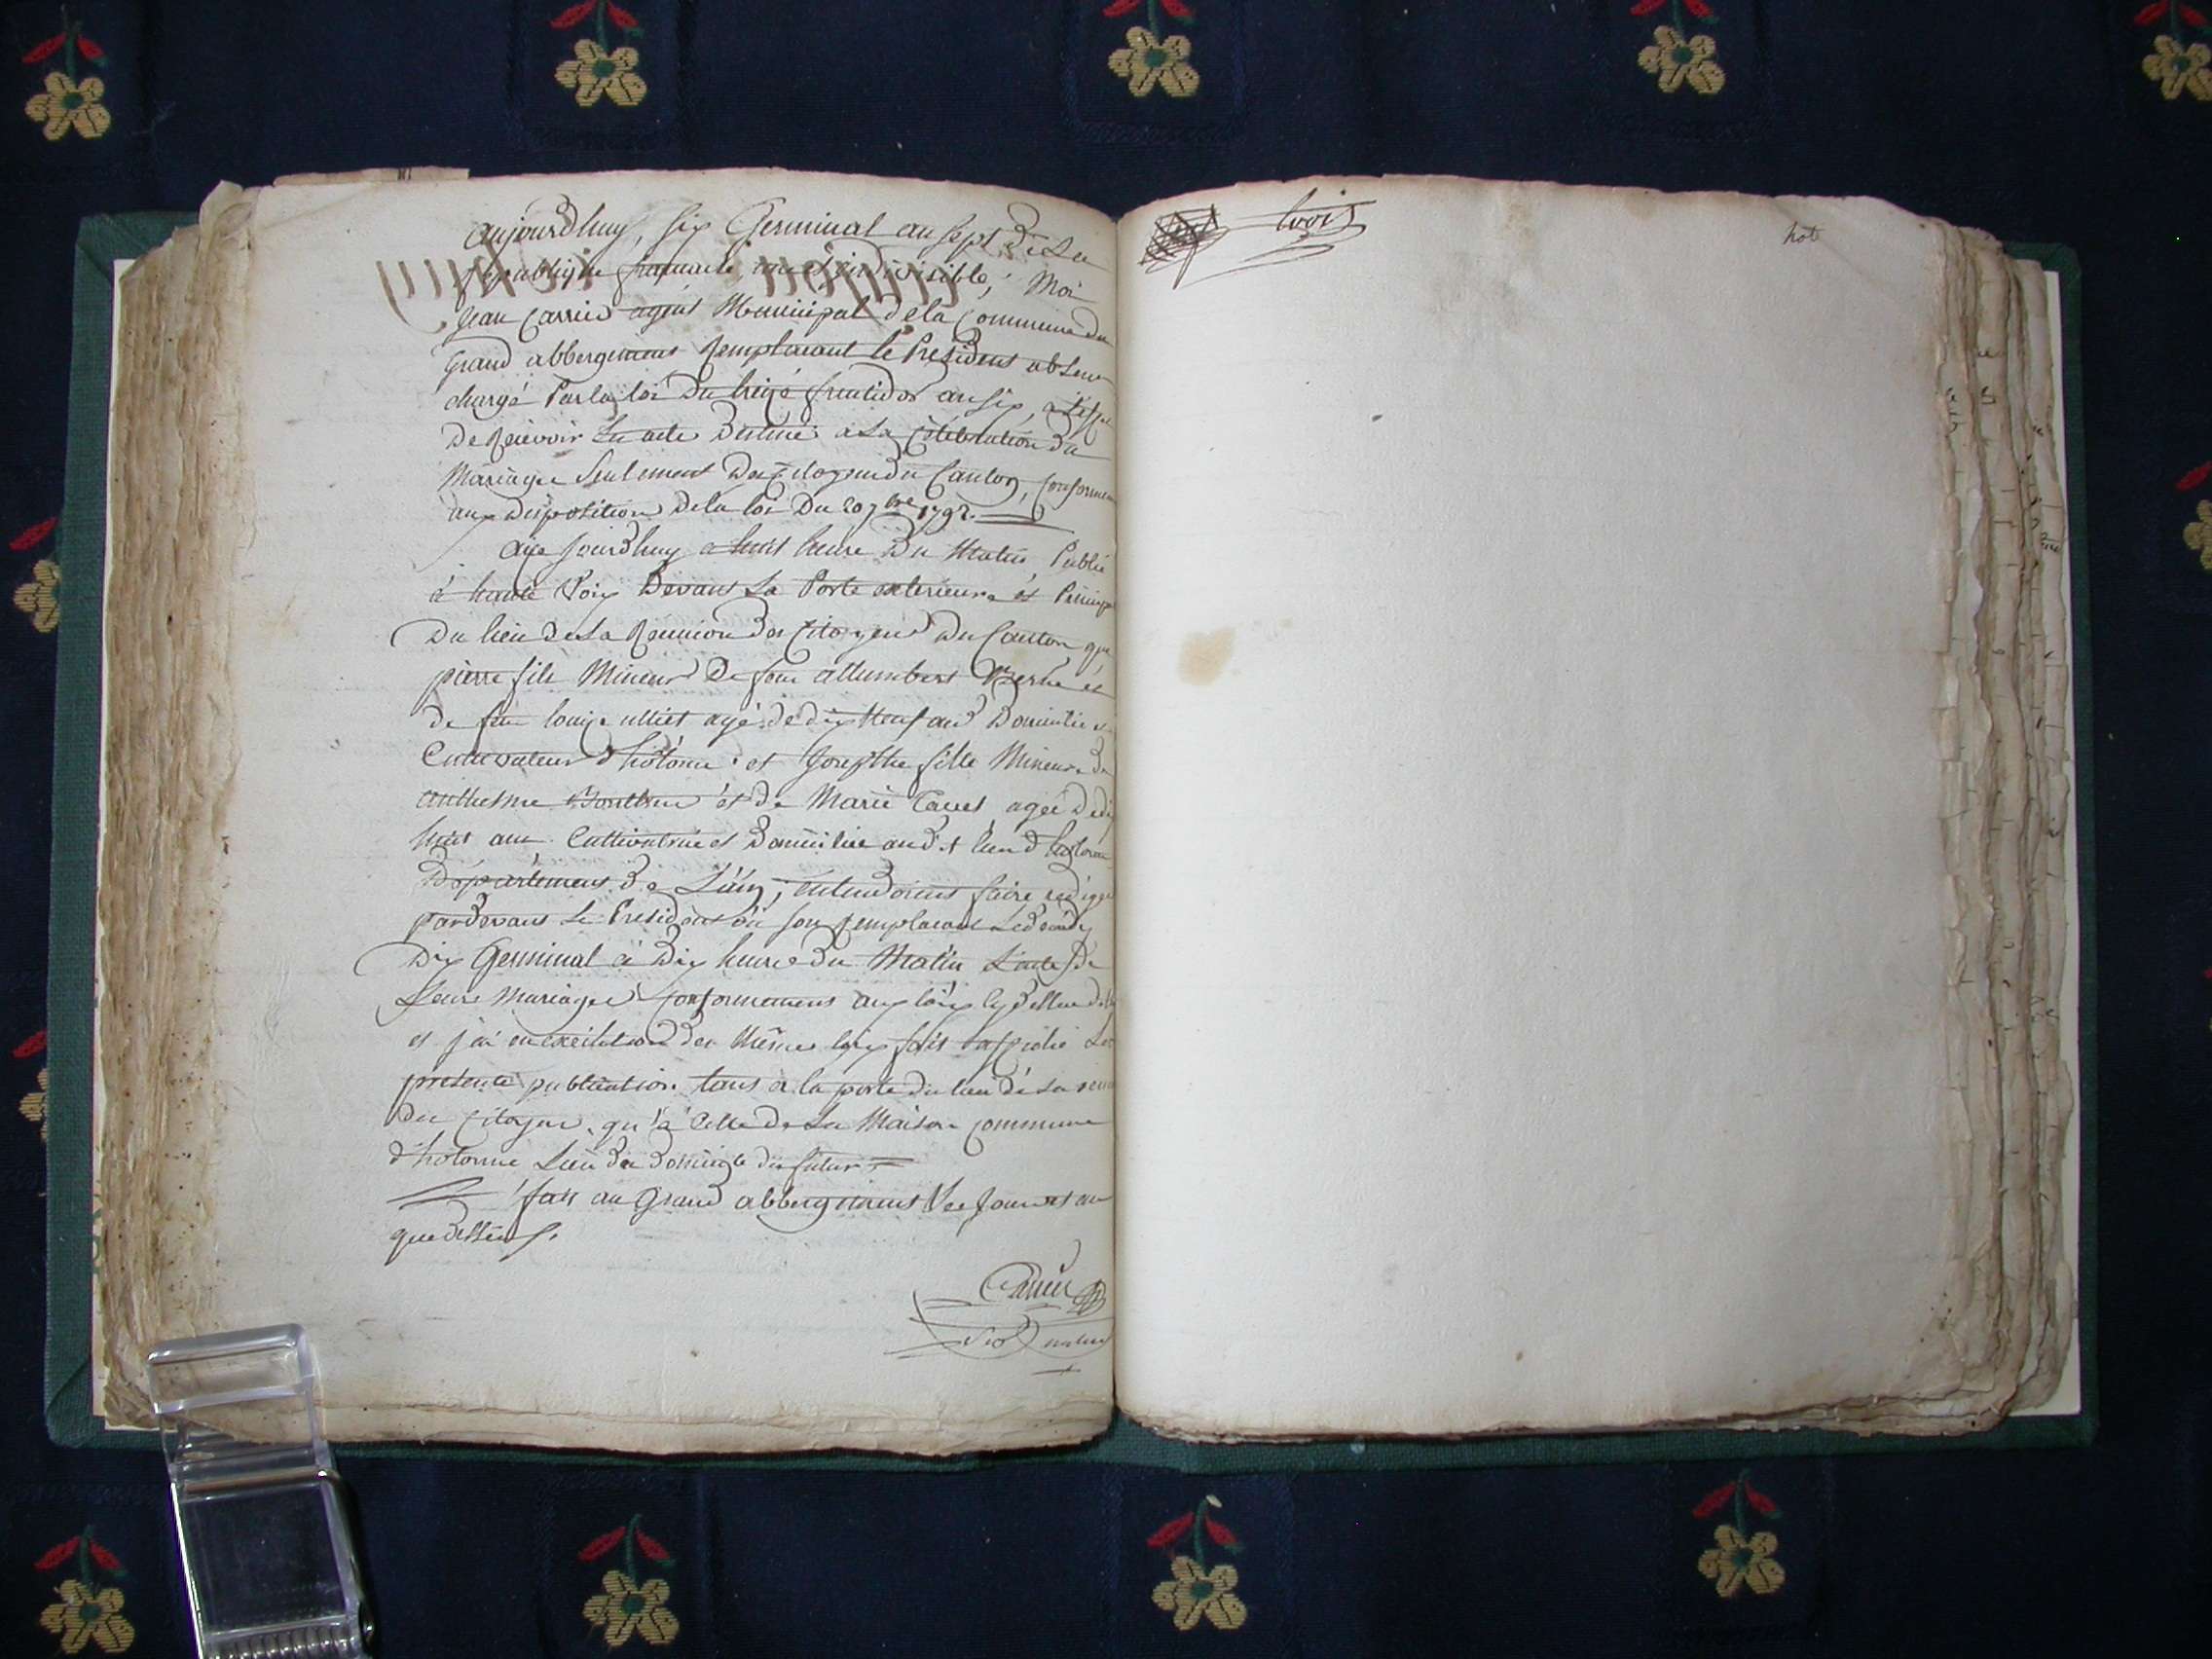 aujourdhuy, six Germinal an sept de la
republique francaise une et indivisible, Moi
jean Carrier agent Municipal de la Commune du
Grand abbergement Remplacant le President absen
chargé Par la loi du treize fructidor an six, a l'effe
de Recevoir Les acte destiné a la Célébration du
Mariage Seulement des Citoyens du Canton, conformem
aux disposition de la loi Du 20 7bre 1792.
aije jourdhuy a huit heure du Matin, Publié
à haute Voix Devant La Porte exterieure et Princip
Du lieu de la Reunion des Citoyens Du Canton que
pierre fils Mineur De feu Berne et
de feu louise ulliet agé de dix Neuf ans Domicilié
Cultivateur d'hotonne et Josephte fille Mineure de
anthelme et de Marie agée de dix
huit ans Cultivatrice et Domicilié audit lieu d'hotonne
Département de L'ain, entendoient faire rédiger
pardevant le President ou son Remplacant Le decady
Dix Germinal à Dix heure du Matin L'acte de
Leurs Mariage Conformement aux loix
et j'ai en execution des Mêmes loix fait afficher La
presente publication tant a la porte du lieu de la reun
des Citoyens, qu'à Celle de La Maison commune
d'hotonne Lieu du domicile des futurs
fait au Grand abbergement Les Jour et an
que dessus.
Carrier
trois
hot